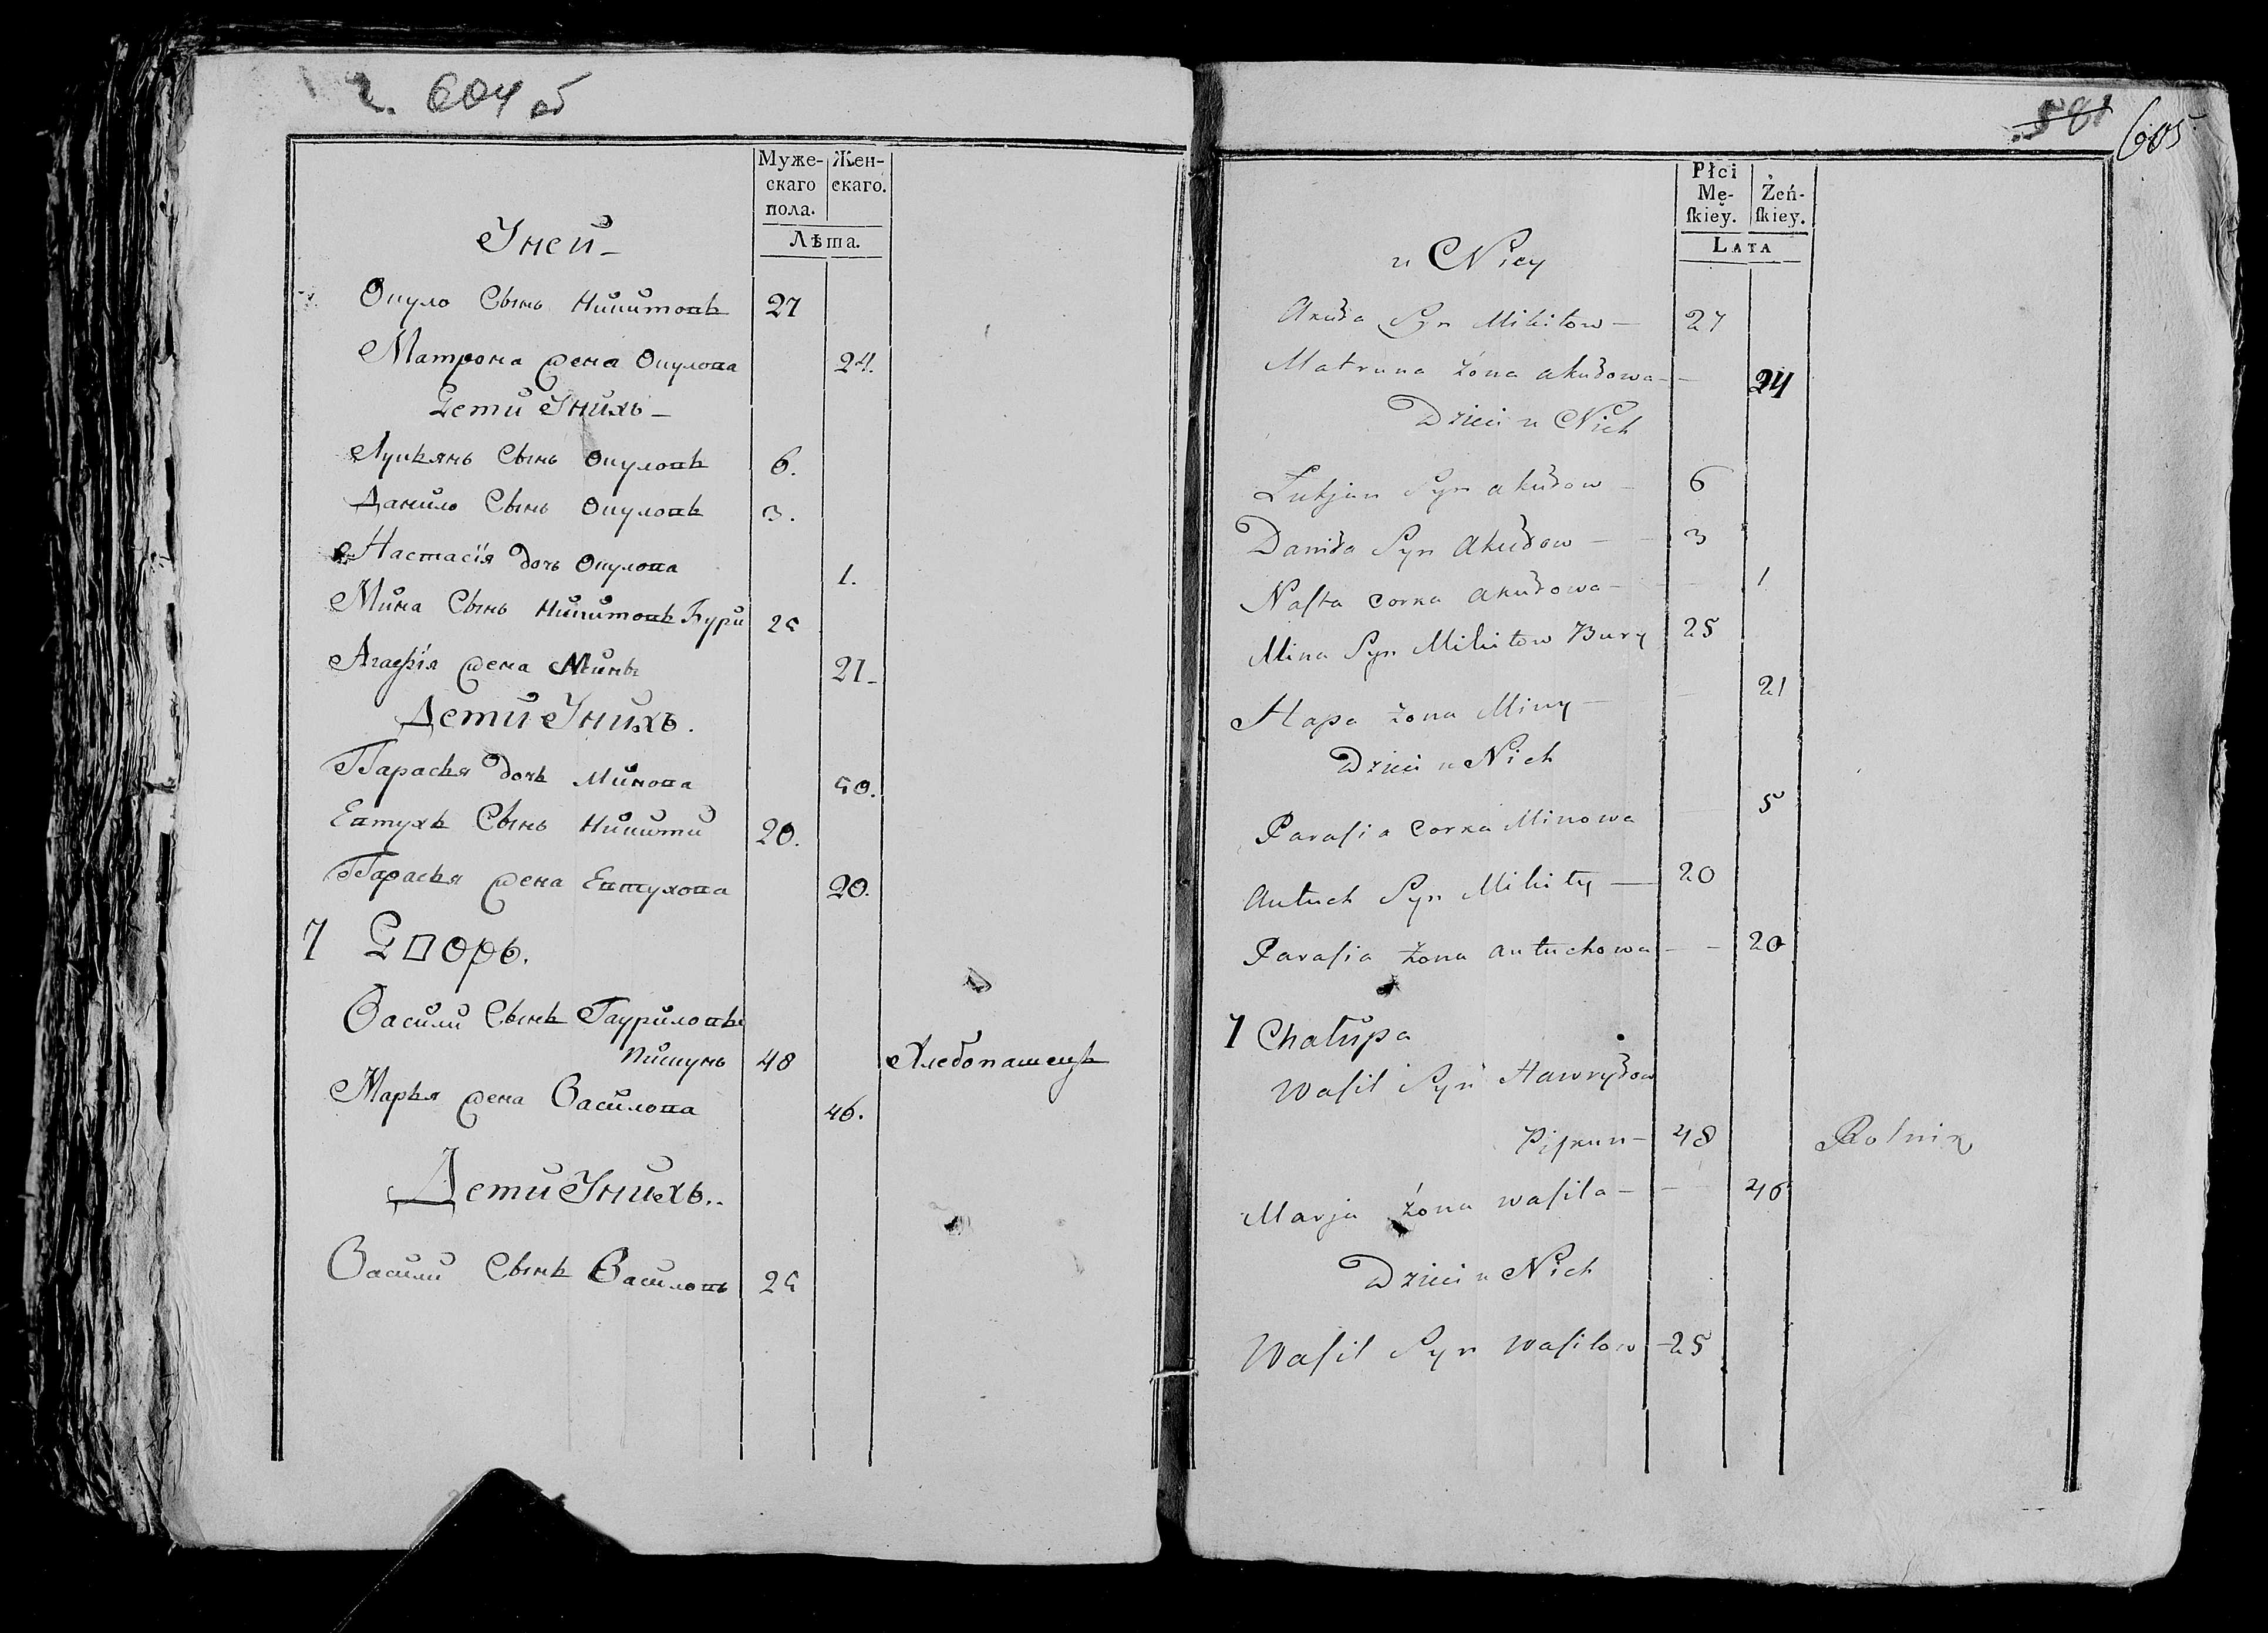 2. 604 об
Муже-
скаго
пола.
Жен-
скаго.
Лѣта.
Уней
Окуло Сынъ Никитовъ 27
Матрона жена Окулова 24.
Дети Унихъ
Лукьянъ Сынъ Окуловъ 6.
Данило Сынъ Окуловъ 3.
Настасія дочь Окулова 1.
Мина Сынъ Никитовъ Бури 25
Агафія жена Мины 21
Дети Унихъ.
Парасья дочь Минова 50.
Евтухъ Сынъ Никити 20.
Парасья жена Евтухова 20.
7 Дворъ.
Васили Сынъ Гауриловъ
Пискунъ 48 Хлебопашецъ
Марья жена Василова 46.
Дети Унихъ.
Васили Сынъ Василовъ 25
581 605
Płci
Mę-
ſkiey.
Żeń-
ſkiey.
LATA
u Niey
Akuła Syn Mikitow 27
Matruna żona akułowa 24
Dzieci u Nich
Łukjan Syn akułow 6
Daniła Syn Akułow 3
Naſta corka akułowa 1
Mina Syn Mikitow Bury 25
Hapa żona Miny 21
Dzieci u Nich
Paraſia corka Minowa 5
Autuch Syn Mikity 20
Paraſia żona autuchowa 20
7 Chałupa
Waſil Syn Hawryłow
Piſkun 48 Rolnik
Marja żona waſila 46
Dzieci u Nich
Waſil Syn waſilow 25